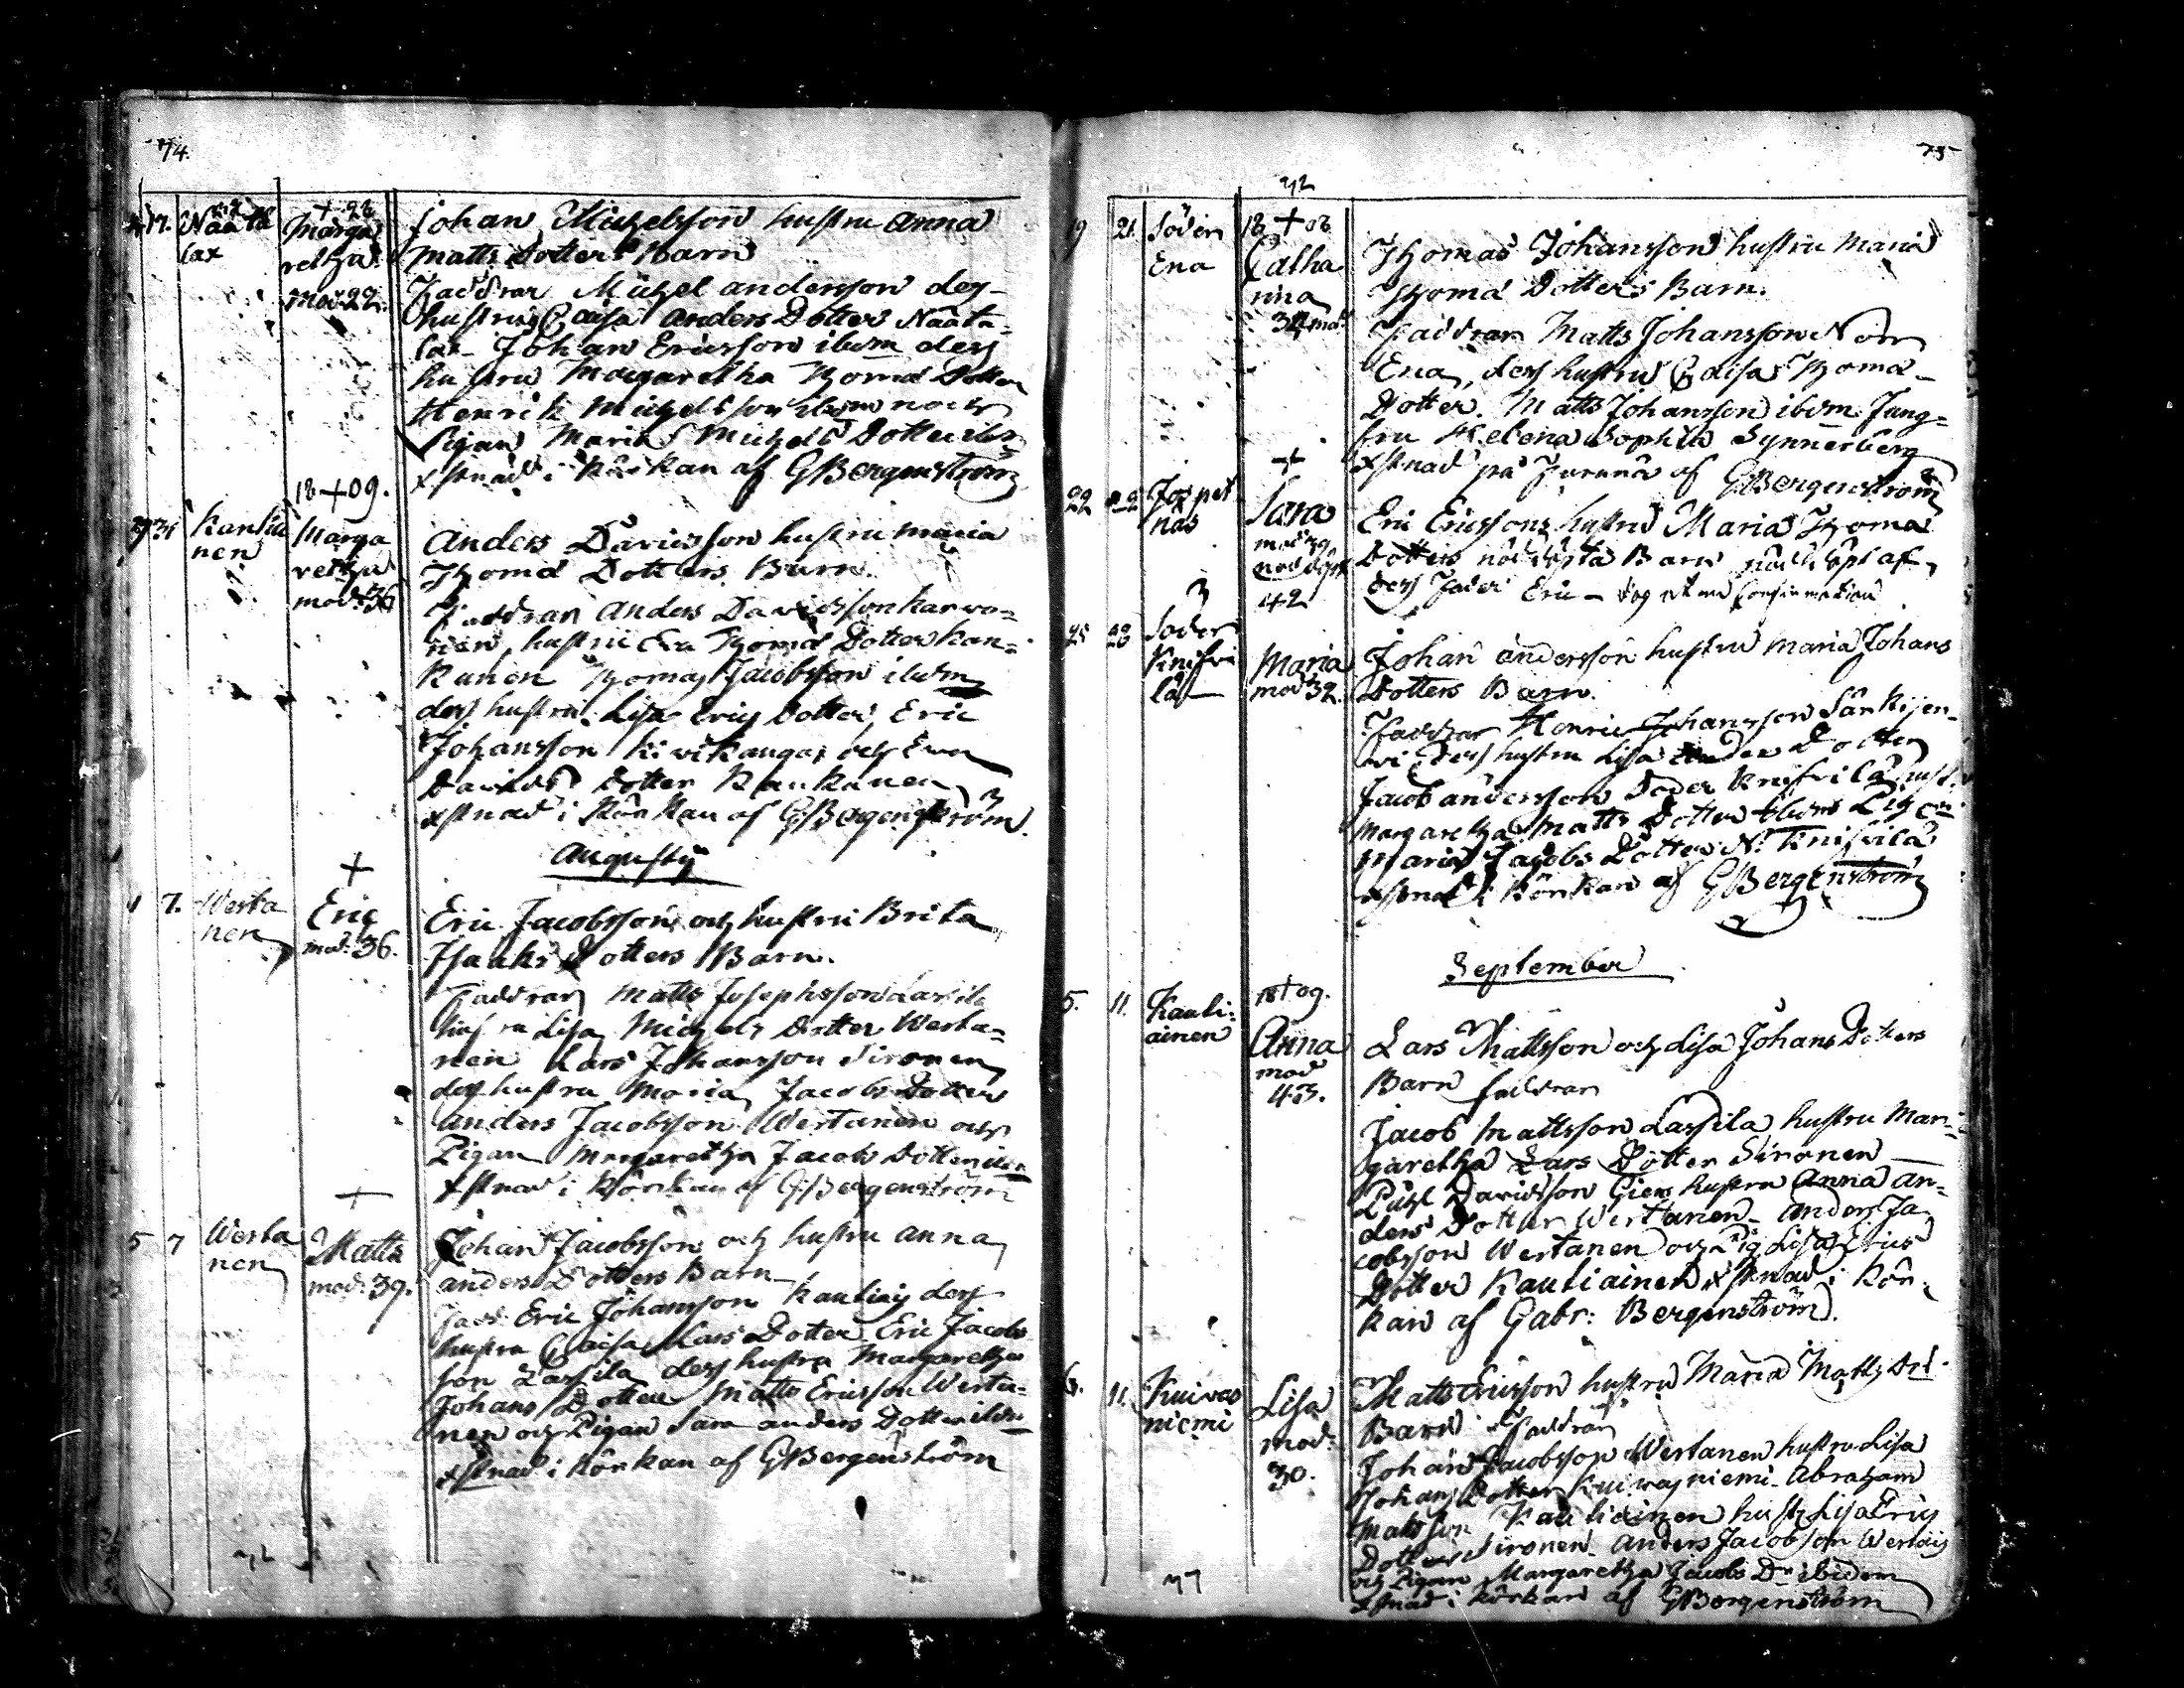 74.
17. Naata
lax
+ 22
Marga
retha
mod. 22.
Johan Michelsson hustru Anna
Matts Dotters Barn
Faddrar Michel andersson dess
hustru Caisa Anders Dotter Naata=
lax Johan Ericsson ibdm dess
hustru Margaretha Thoma Dotter
Henrik Michelsson ibdm och
Pigan Maria Michels Dotter ibdm
xstnad i Kõrkan af GBergenström
31 Kanku
nen
18+09.
Marga
retha
mod. 36
Anders Davidsson hustru Maria
Thoma Dotters Barn.
Faddrar Anders Davidsson Karvo=
nen, hustru Eva Thoma Dotter Kan=
kunen Thomas Jacobsson ibdm
dess hustru Lisa Erics Dotter, Eric
Johansson Kivikangas och Ewa
Davids Dotter Kankunen
xstnad i Kõrkan af GBergenström.
Augusty
7. Werta
nen
+
Eric
mod. 36.
Eric Jacobsson och hustru Brita
Isaaks Dotters Barn.
Faddrar Matts Josephsson Lassila
hustru Lisa Michels Dotter Werta=
nen Lars Johansson Sironen
dess hustru Maria Jacobs Dotter
Anders Jacobsson Wertanen och
Pigan Margaretha Jacobs Dotter ibdm
xstnad i Kõrkan af GBergenström
5 7 Werta
nen
+
Matts
mod. 39.
Johan Jacobsson och hustru Anna
Anders Dotters Barn
Fadd. Eric Johansson Kauliais dess
hustru Caisa Lars Dotter Eric Jacobs
son Lassila dess hustru Margaretha
Johans Dotter Matts Ericsson Werta=
nen och Pigan Sara Anders Dotter ibdm
xstnad i Kõrkan af GBergenström
75
19 21. Söder
Ena
18 + 08
Catha
rina
34 mod.
Thomas Johansson hustru Maria
Thoma Dotters Barn.
Faddrar Matts Johansson Norr
Ena, dess hustru Caisa Thoma
Dotter. Matts Johansson ibdm Jung=
fru Helena Sophia Synnerberg
xstnad på af GBergenström
22 Jospet
näs
+
Sara
mod 39
nöddöpt
Eric Ericssons hustru Maria Thoma
Dotters nöddöpta Barn nöddöpt af
dess Fader Eric
25 28 Söder
Knifvi
lä
42
Maria
mod 32.
Johan Andersson hustru Maria Johans
Dotters Barn.
Faddrar Henric Johansson Särkijer=
vi, dess hustru Lisa Anders Dotter
Jacob Andersson Söder Knifvilä hust.
Margaretha Matts Dotter ibdm Pigan
Maria Jacobs Dotter N. Knifvilä
xstnad i Kõrkan af GBergenström
September
5. 11. Kauli=
ainen
18+09.
Anna
mod
43.
Lars Mattsson och Lisa Johans Dotters
Barn faddrar
Jacob Mattsson Lassila hustru Mar=
garetha Lars Dotter Sironen
Davidsson hustru Anna An=
ders Dotter Wertanen Anders Ja
cobsson Wertanen och Pig. Lisa Erics
Dotter Kauliainen xstnad i Kõr=
kan af Gabr: Bergenström.
6. 11. Kuivas
niemi
Lisa
mod:
30.
Matts Ericsson hustru Maria Matts Dot.
Barn Faddrar
Johan Jacobsson Wertanen hustru Lisa
Johans Dotter Kuivasniemi. Abraham
Matsson Kauliainen hust. Lisa Erics
Dotter Sironen Anders Jacobsson Wertais
och Pigan Margaretha Jacobs Dr ibidem
xstnad i Kõrkan af GBergenström
77